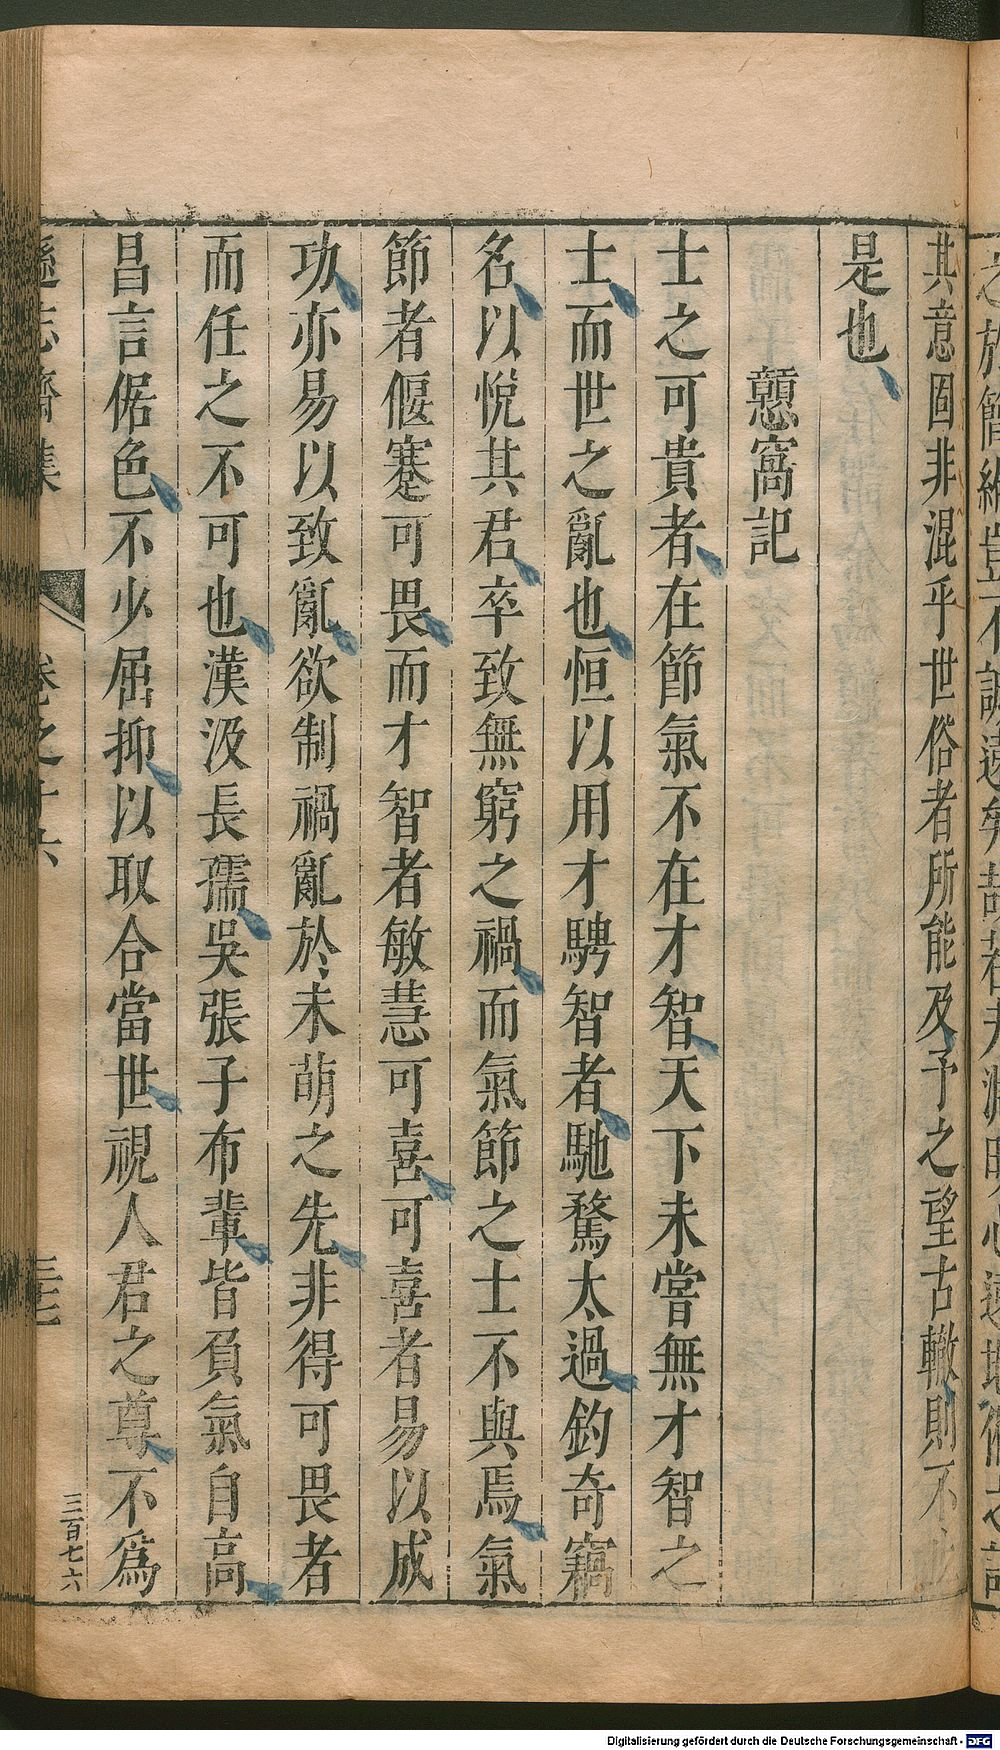 其意固非混乎世俗者所能及予之望古轍則不
是也
戇窩記
士之可貴者在節氣不在才智天下未嘗無才智之
士而世之亂也恒以用才騁智者馳騖太過釣奇竊
名以悅其君卒致無窮之禍而氣節之士不與焉氣
節者偃蹇可畏而才智者敏慧可喜可喜者易以成
功亦易以致亂欲制禍亂於未萌之先非得可畏者
而任之不可也漢汲長孺吳張子布輩皆負氣自高
昌言倨色不少屈抑以取合當世視人君之尊不為
遜志齋集
卷之十六
三七
三百七六
Digitalisierung gefördert durch die Deutsche Forschungsgemeinschaft - DFG